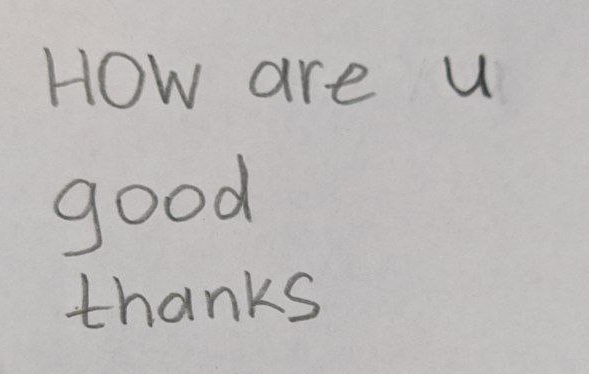 HOW are u
good
thanks